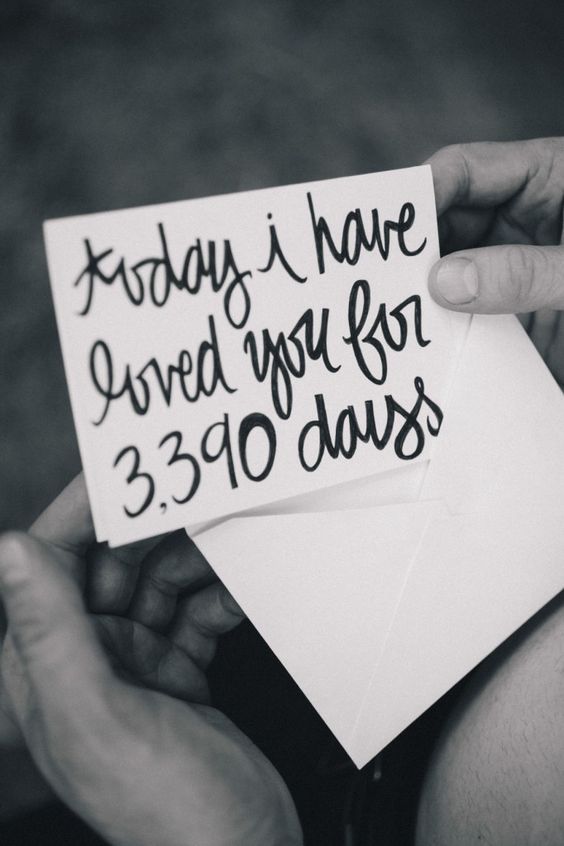 today i have
loved you for
3,390 days